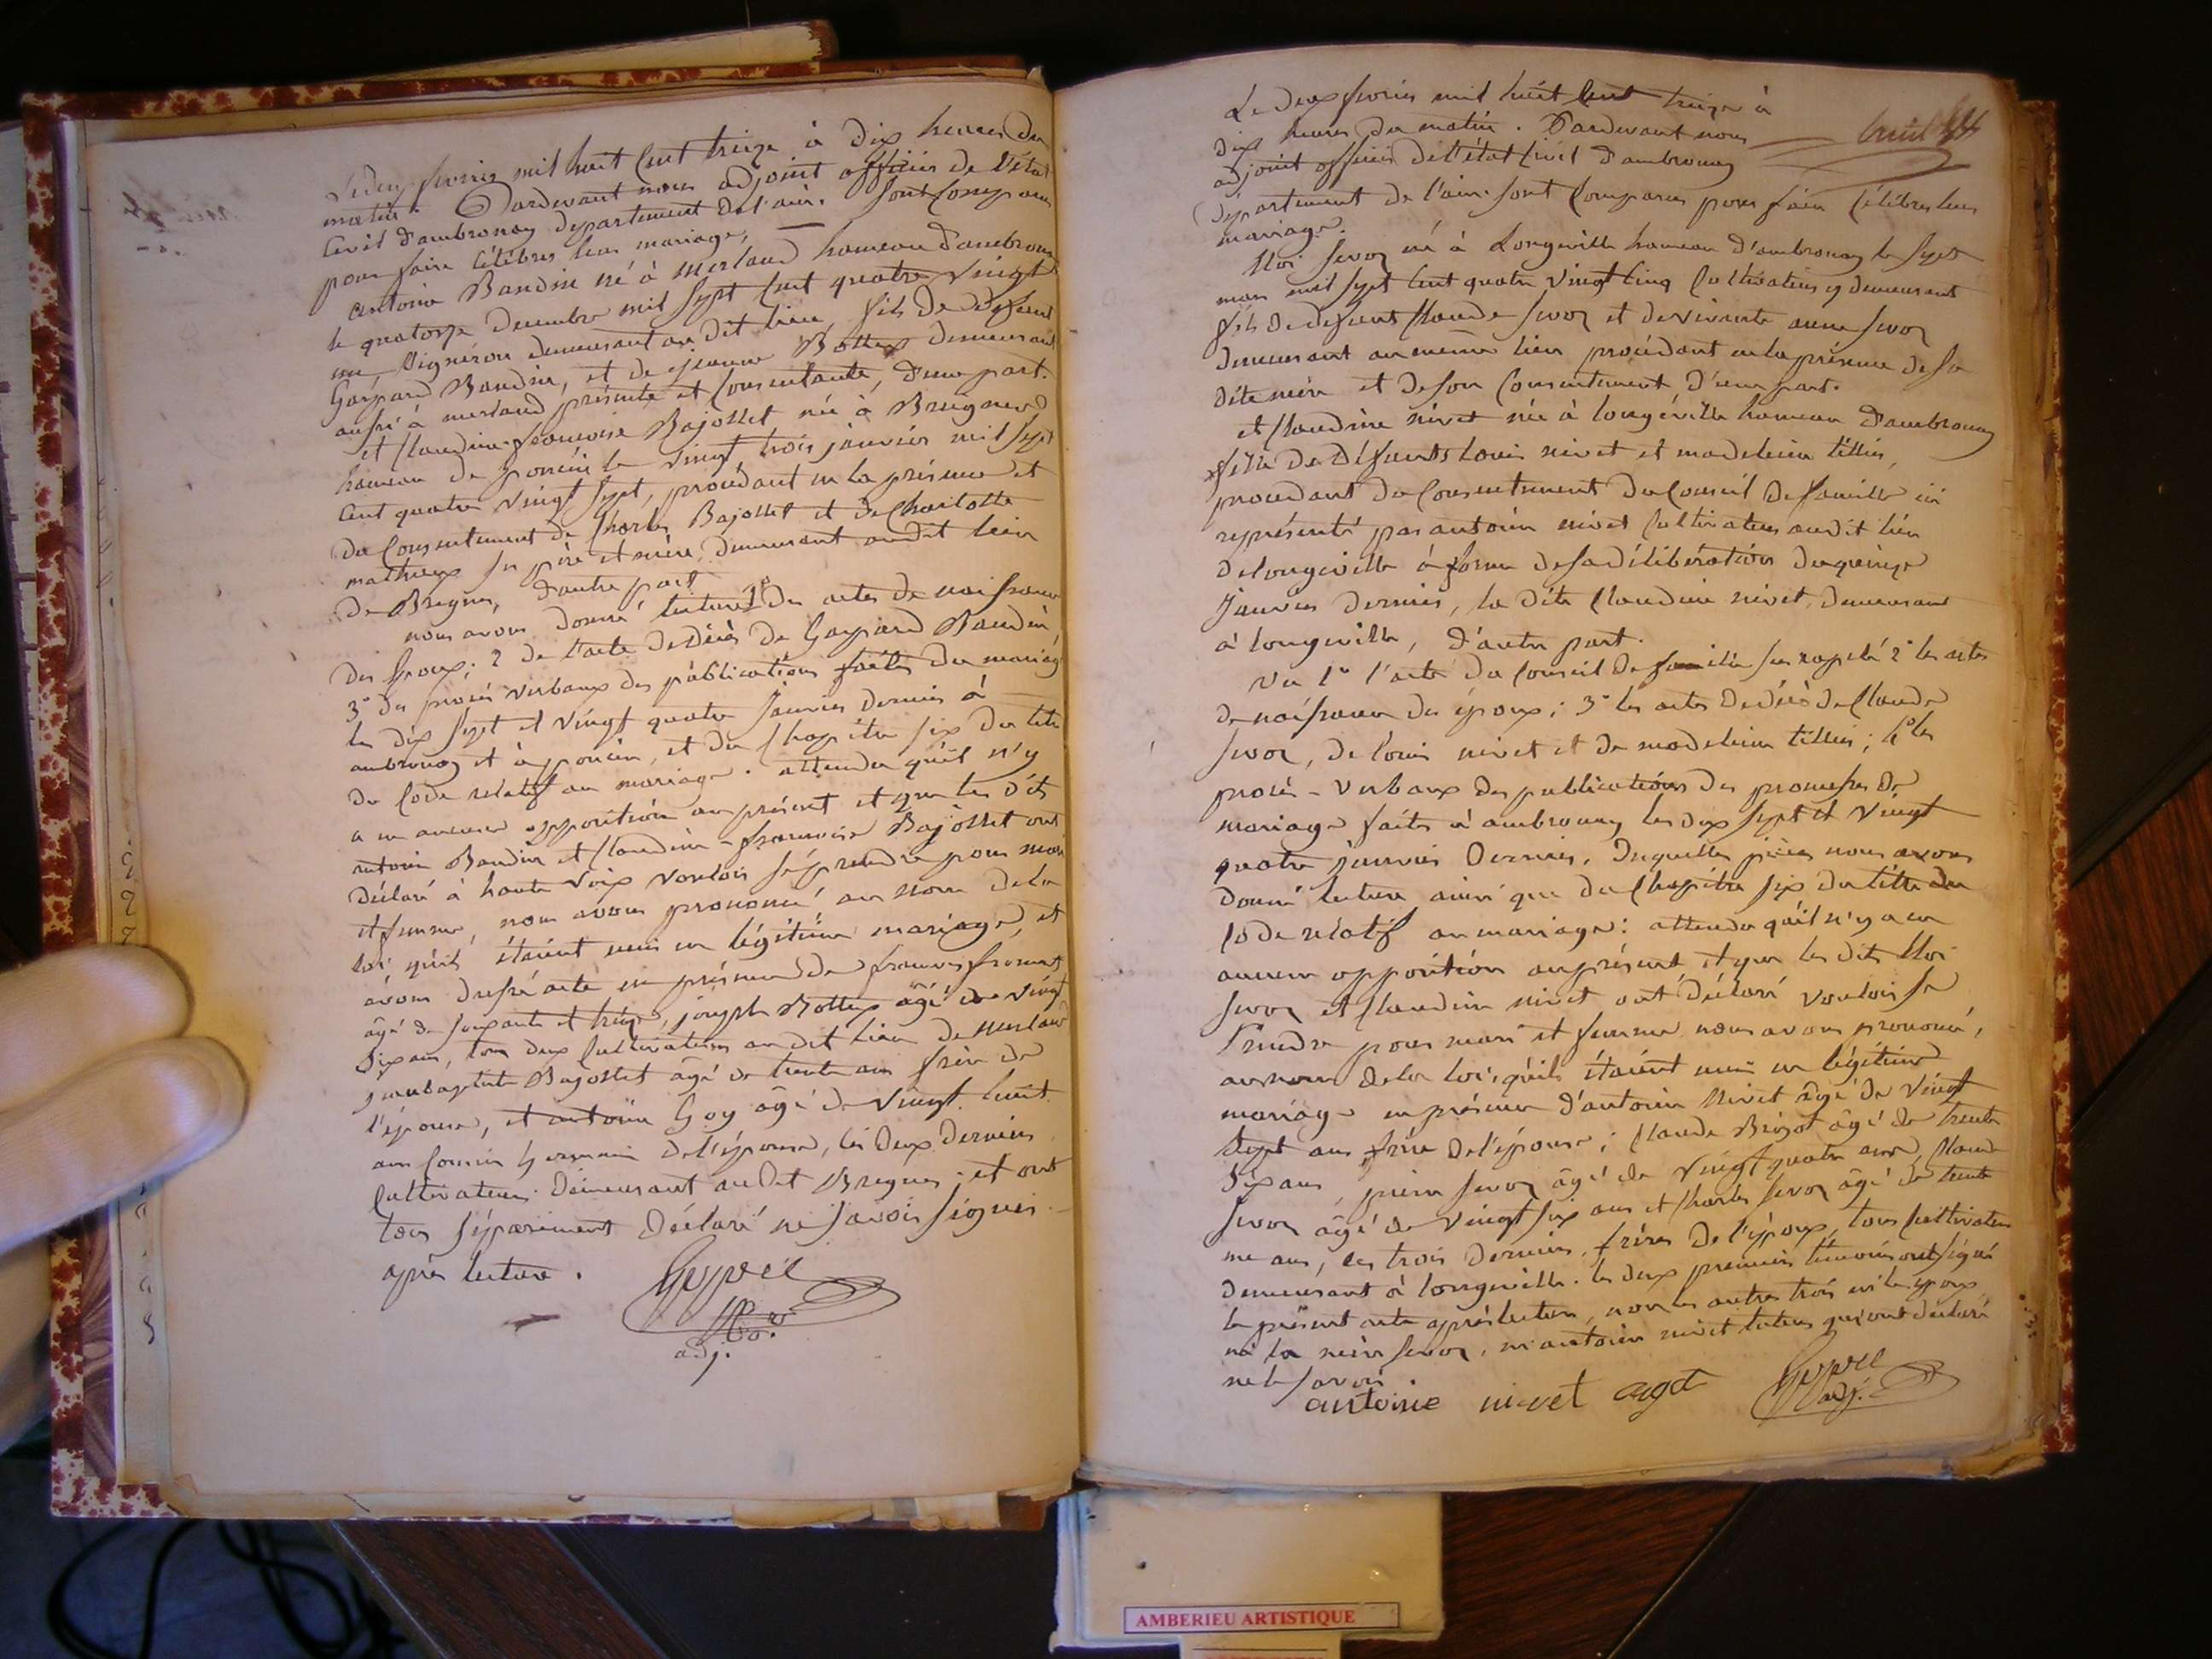 Le deux fevrier mil huit cent treize à dix heures du
matin. Pardevant nous adjoint officier de l'état
Civil d'ambronay departement de l'ain. sont comparus
pour faire célébrer leur mariage,
antoine Baudin né à merland hameau d'ambronay
le quatorze decembre mil sept cent quatre vingt
un, Vigneron demeurant au dit lieu, fils de defunt
Gaspard Baudin, et de jeanne Bottex demeurant
aussi à merland présente et consentante, d'une part.
et Claudine françoise Bajollet née à Breignes
hameau de poncin le vingt trois janvier mil sept
cent quatre vingt sept, procédant en la présence et
du consentement de Charles Bajollet et de Charlotte
mathieux ses père et mère demeurant audit lieu
de Bregnes, d'autre part
nous avons donné lecture 1° des actes de naissance
des époux; 2° de l'acte de décès de Gaspard Baudin,
3° des procès verbaux des publications faites du mariage
les dix sept et vingt quatre janvier dernier à
ambronay et à poncin, et du chapitre six du titre
du Code relatif au mariage. attendu qu'il n'y
a eu aucune opposition au présent et que les dits
antoine Baudin et Claudine-françoise Bajollet ont
déclaré à haute voix vouloir se prendre pour mari
et femme, nous avons prononcé au nom de la
loi qu'ils étaient unis en légitime mariage, et
avons dressé acte en présence de françois froment
âgé de soixante et treize, joseph Bottex âgé de vingt
six ans, tous deux cultivateurs au dit lieu de merland
jeanbaptiste Bajollet âgé de trente ans frère de
l'épouse, et antoine Goy âgé de vingt huit
ans cousin germain de l'épouse, les deux derniers
cultivateurs demeurant audit Bregnes; et ont
tous séparément déclaré ne savoir signer
après lecture.
adj.
Le deux fevrier mil huit cent treize à
dix heures du matin. Pardevant nous
adjoint officier de l'état civil d'ambronay
département de l'ain. sont comparus pour faire célébrer leur
mariage.
né à Longeville hameau d'ambronay le sept
mars mil sept cent quatre vingt cinq cultivateur y demeurant
fils de defunt Claude et de vivante anne
demeurant au meme lieu procédant en la présence de sa
dite mère et de son consentement d'une part.
et Claudine nivet née à longeville hameau d'ambronay
fille de défunts louis nivet et madeleine tillier,
procedant du consentement du Conseil de famille ici
représenté par antoine nivet cultivateur audit lieu
de longeville à forme de sa délibération du quinze
janvier dernier, la dite Claudine nivet, demeurant
à longeville, d'autre part.
Vu 1° l'acte du Conseil de famille sus rapelé 2° les actes
de naissance des époux; 3° les actes de décès de Claude
de louis nivet et de madeleine tillier; 4° les
procès-verbaux des publications des promesses de
mariage faites à ambronay les dix sept et vingt
quatre janvier dernier, desquelles pièces nous avons
donné lecture ainsi que du Chapitre six du titre du
Code relatif au mariage: attendu qu'il n'y a eu
aucune opposition au présent et que les dits
et Claudine nivet ont déclaré vouloir se
Prendre pour mari et femme nous avons prononcé,
au nom de la loi, qu'ils étaient unis en légitime
mariage en présence d'antoine Nivet âgé de vingt
sept ans frère de l'épouse; Claude âgé de trente
six ans, pierre âgé de vingt quatre ans, Claude
âgé de vingt six ans et Charles âgé de trente
un ans, les trois derniers, frères de l'époux, tous cultivateurs
demeurant à longeville. les deux premiers témoins ont signé
le présent acte après lecture, non les autres trois ni les époux
ni la mère ni antoine nivet tuteur qui ont déclaré
ne le savoir
antoine nivet
adj.
AMBERIEU ARTISTIQUE